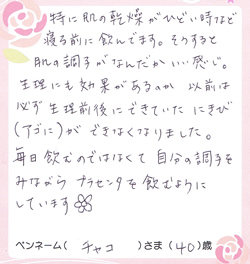 特に肌の乾燥がひどい時など
寝る前に飲んでます。そうすると
肌の調子がなんだかいい感じ。
生理にも効果があるのか 以前は
必ず生理前後にできていた にきび
(アゴに)が できなくなりました。
毎日飲むのではなくて 自分の調子を
みながら プラセンタを 飲むように
しています
ペンネーム( チャコ )さま (40)歳